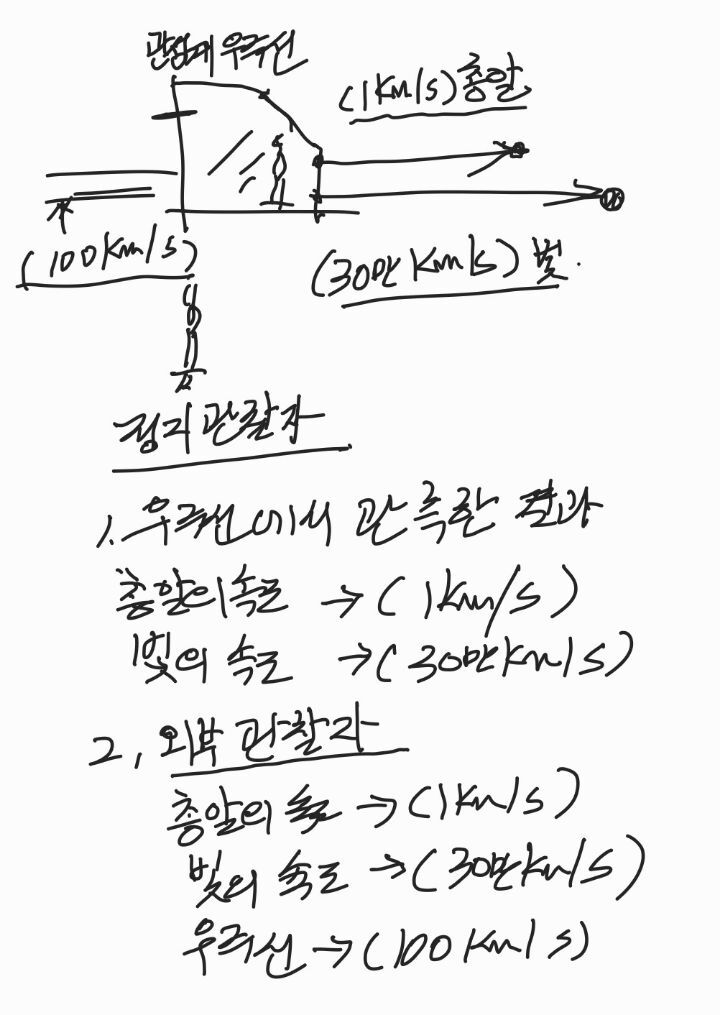 관성계 우주선
(1Km/s)총알
(100Km/s)
(30만Km/s) 빛.
정지관찰자
1. 우주선에서 관측한 결과
총알의속도 → (1Km/s)
빛의 속도 → (30만Km/s)
2, 외부관찰자
총알의 속도 → (1Km/s)
빛의 속도 → (30만Km/s)
우주선 → (100Km/s)